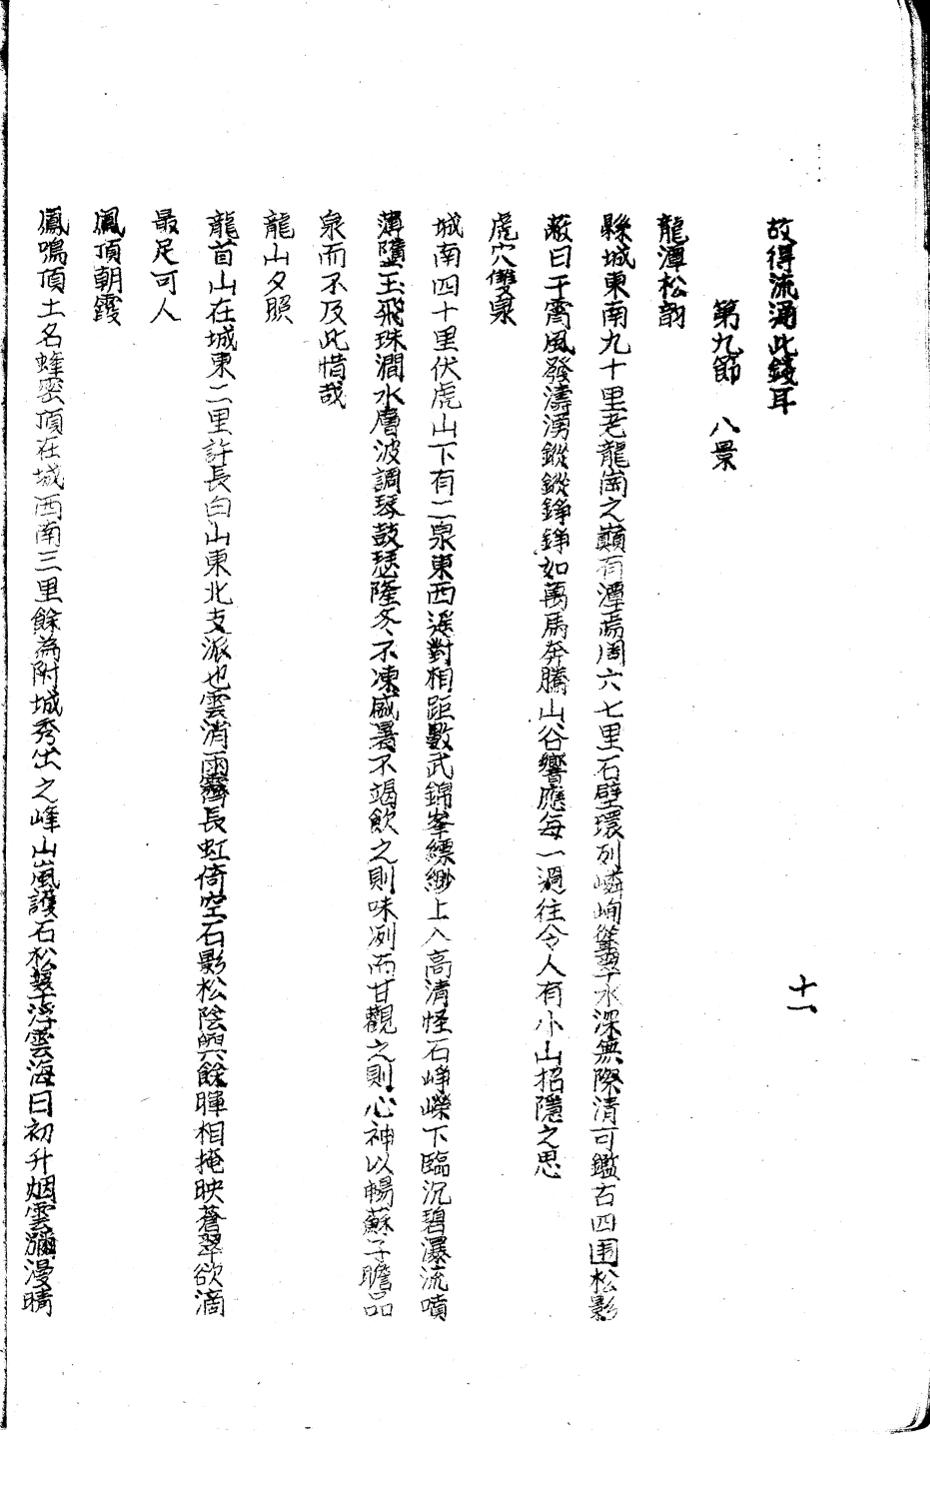 故得流通此錢耳
第九節 八景
龍潭松韵
縣城東南九十里老龍崗之巔有潭焉周六七里石壁環列嶙峋篷孛水深無際清可鑑古四围松影
蔽日干霄風發濤湧鏦鏦錚錚如萬馬奔騰山谷響應每一過往令人有小山招隱之思
虎穴雙泉
城南四十里伏虎山下有二泉東西遙對相距數武錦峯縹緲上入高清怪石崢嶸下臨沉碧瀑流噴
薄墮玉飛珠澗水層波調琴鼓瑟隆冬不凍盛暑不竭飲之則味冽而甘觀之則心神以暢蘇子瞻品
泉而不及此惜哉
龍山夕照
龍首山在城東二里許長白山東北支派也雲消雨霽長虹倚空石影松陰與餘暉相掩映蒼翠欲滴
最足可人
鳳頂朝霞
鳳鳴頂土名蜂蜜頂在城西南三里餘為附城秀出之峰山嵐護石松聲浮雲海日初升烟雲瀰漫晴
十一